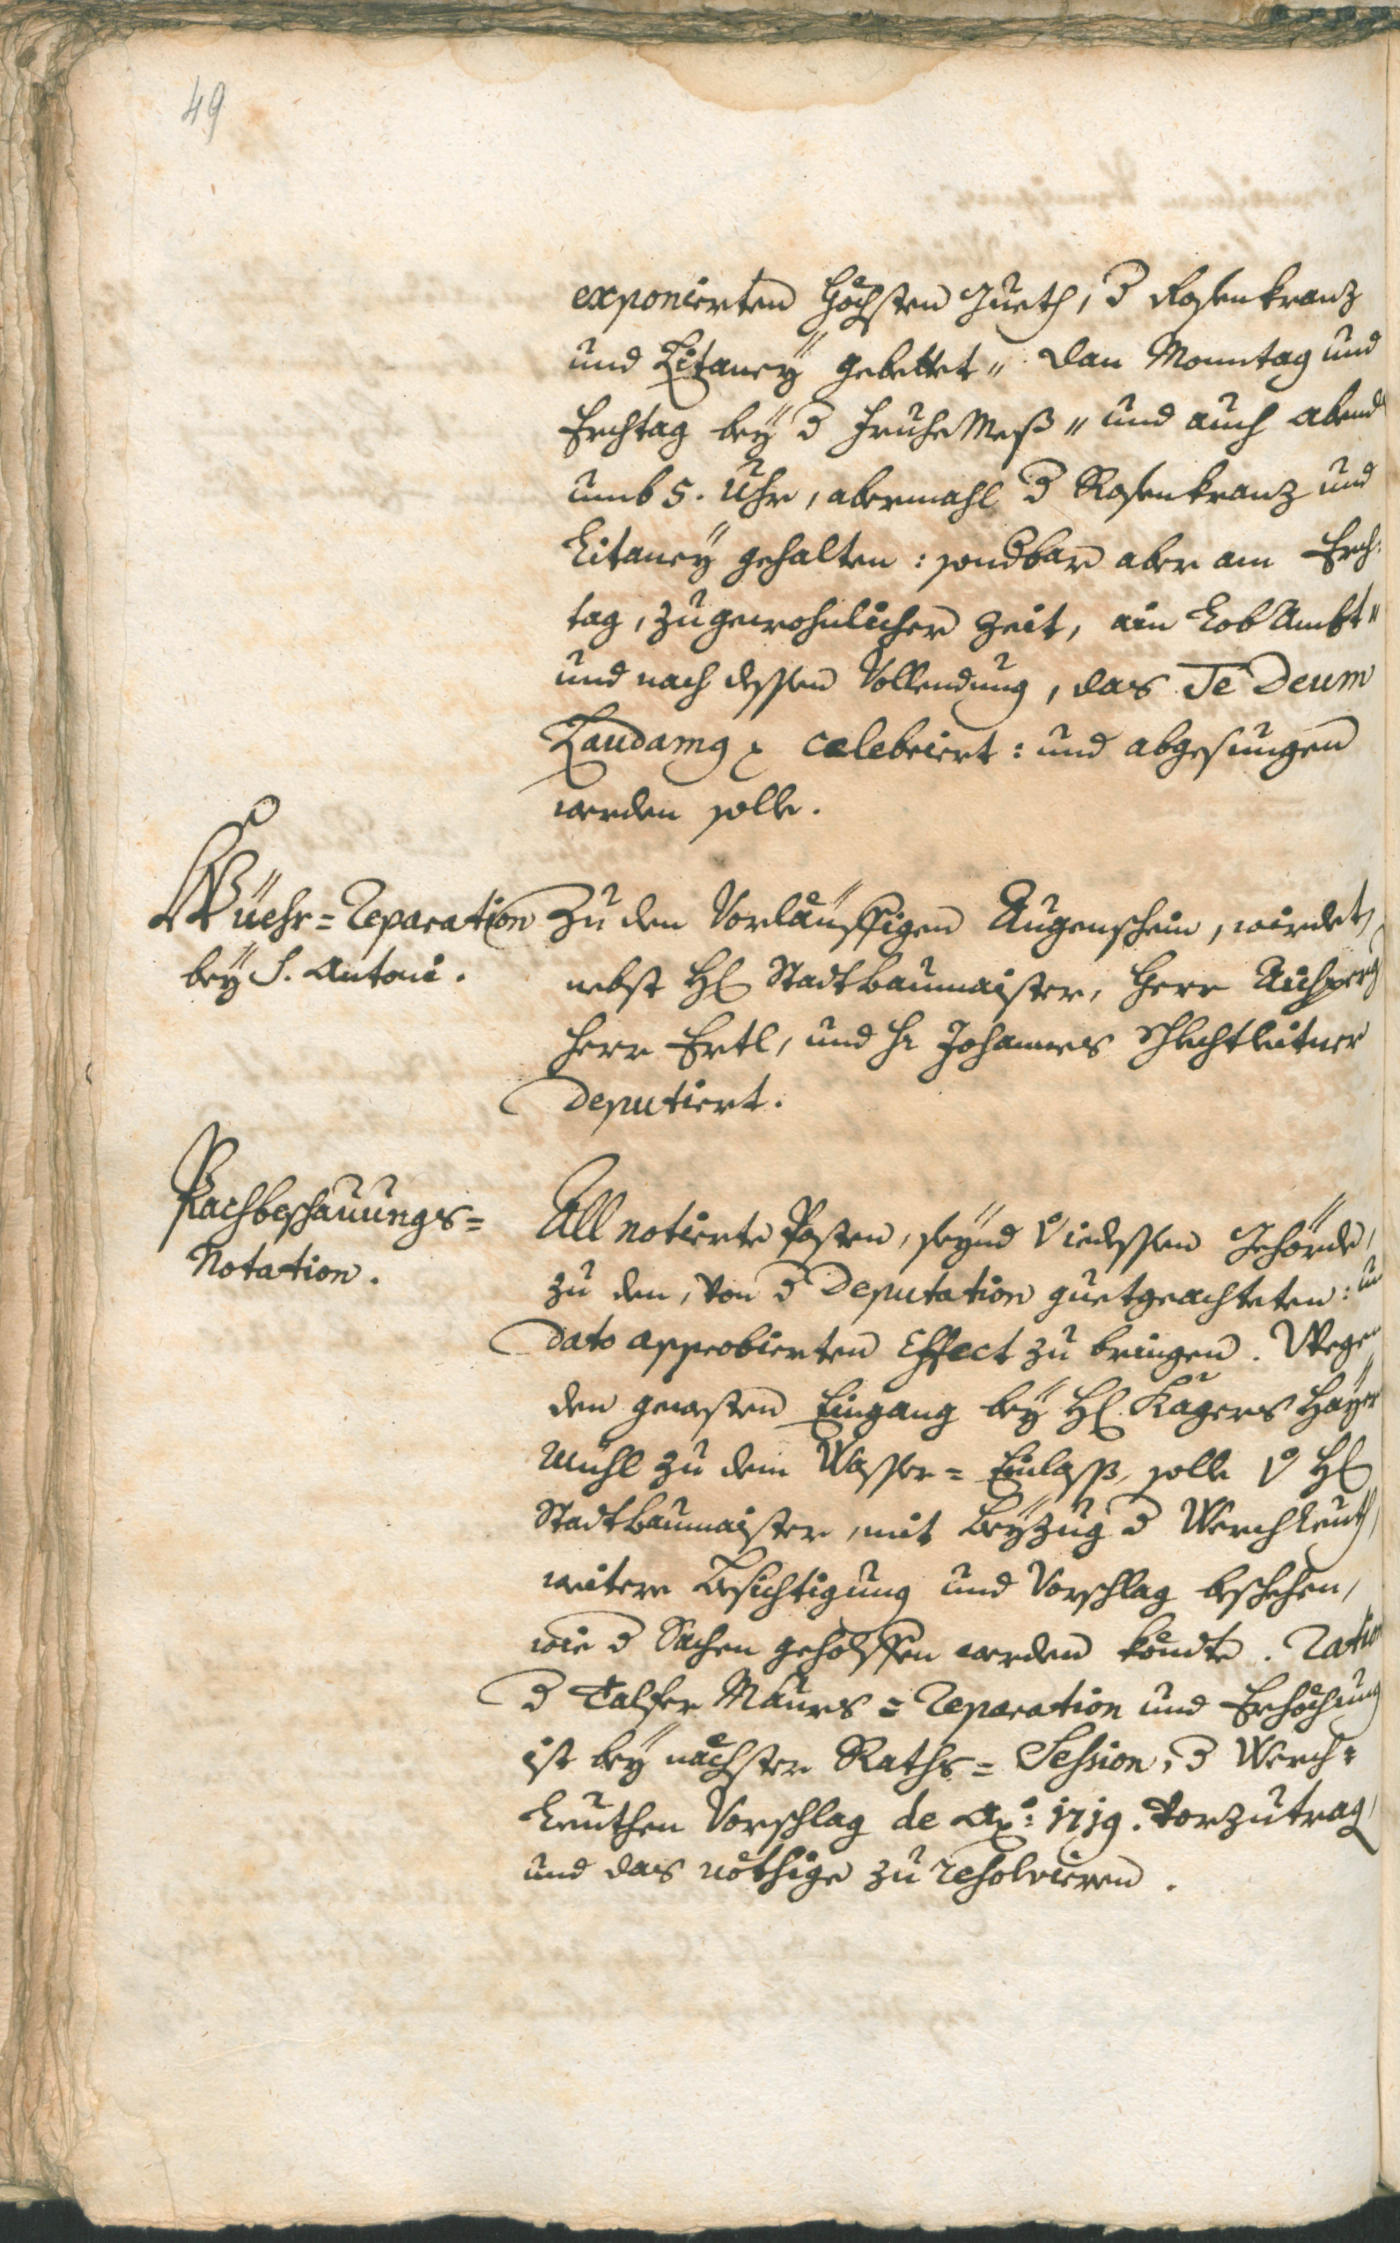 49
exponierten Höchsten Gueth, d Rosenkranz
und Litaney gebettet„ dan Monntag und
Erchtag bey d Fruhe Mess„ und auch abend
umb 5. Uhr, abermahl d Rosenkranz und
Litaney gehalten: sondbar aber am Erch:
tag, zu gewohnlicher Zeit, ain Lob Ambt„
und nach dessen Vollendung, das Te Deum
Laudamg celebriert: und abgesungen
werden solle.
Wüehr=Reparation
bey S. Antoni.
Zu den Vorläuffigen Augenschein, wirdet,
nebst H Stadtbaumaister, Herr
Herr Ertl, und H Johannes Schlechtleitner
deputiert.
Bachbeschauungs=
Notation.
All notierte Posten, seynd iedessen Gehörde,
zu den, von d Deputation guetgeachteten: un
dato approbierten Effect zu bringen. Wegen
den Eingang bey H Kagers
Mühl zu dem Wasser=Einlass, solle H
Stadtbaumaister, mit Beyzug d Werchleuth,
weitere Besichtigung und Vorschlag beschehen,
wie d Sachen geholffen werden köndte. Ration
d Talfer Maurs=Reparation und Erhöchung
ist bey nächster Raths=Session, d Werch=
Leuthen Vorschlag de Ao: 1719. vorzutrag,
und das nöthige zu resolvieren.